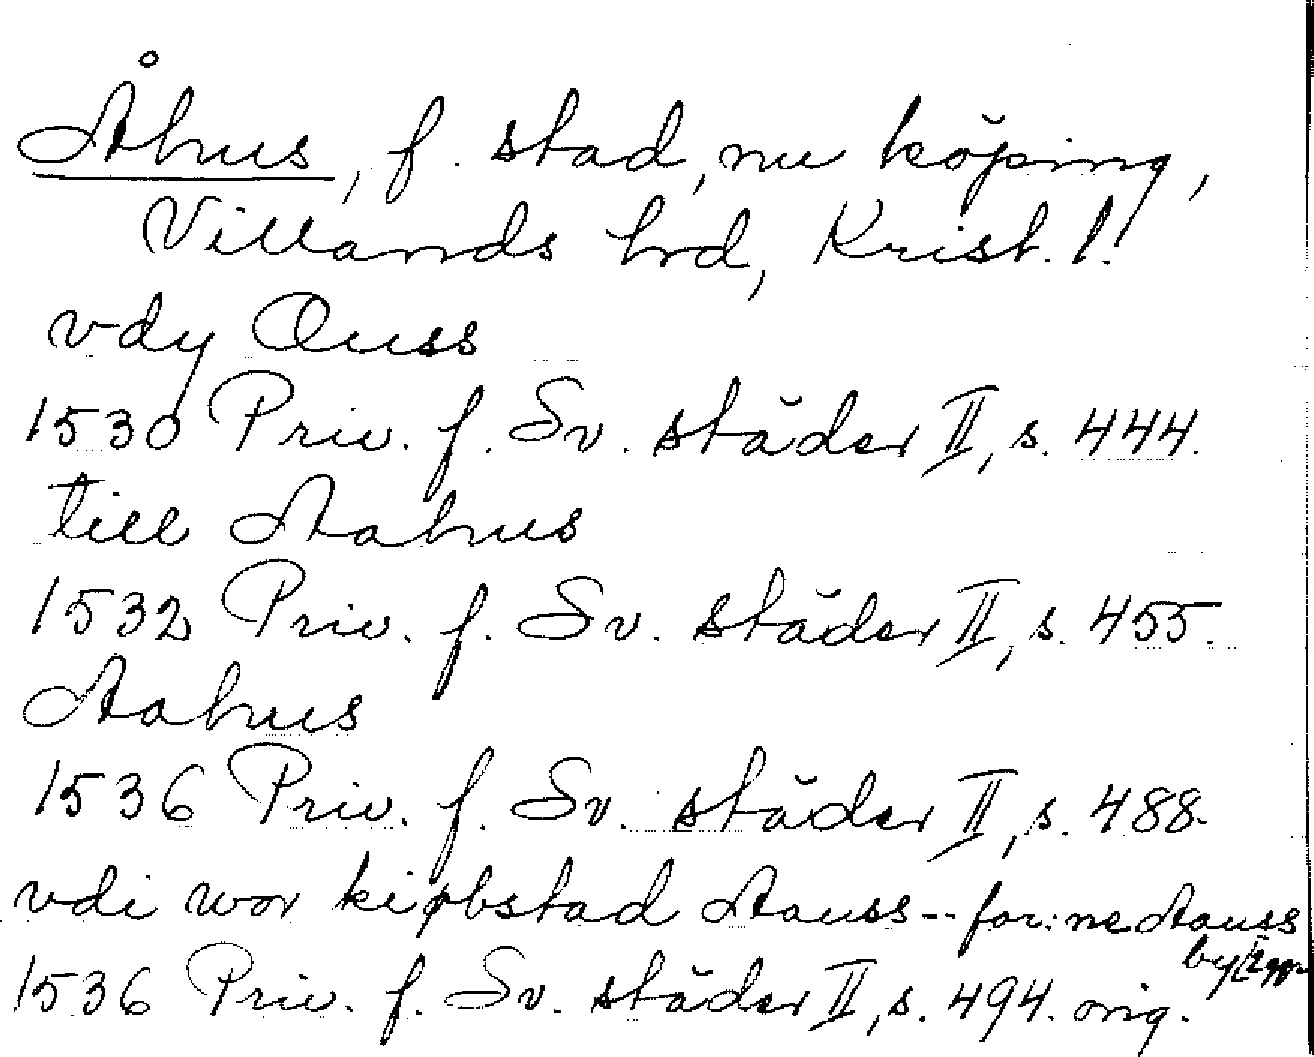 Åhus, f. stad, nu köping,
Villands hrd, Krist. l.
vdy Ouss
1530 Priv. f. Sv. städer II, s. 444.
till Aahus
1532 Priv. f. Sv. städer II, s. 455.
Aahus
1536 Priv. f. Sv. städer II, s. 488.
vdi wor kiøbstad Aauss -- for:ne Aauss
by
1536 Priv. f. Sv. städer II, s. 494. orig.